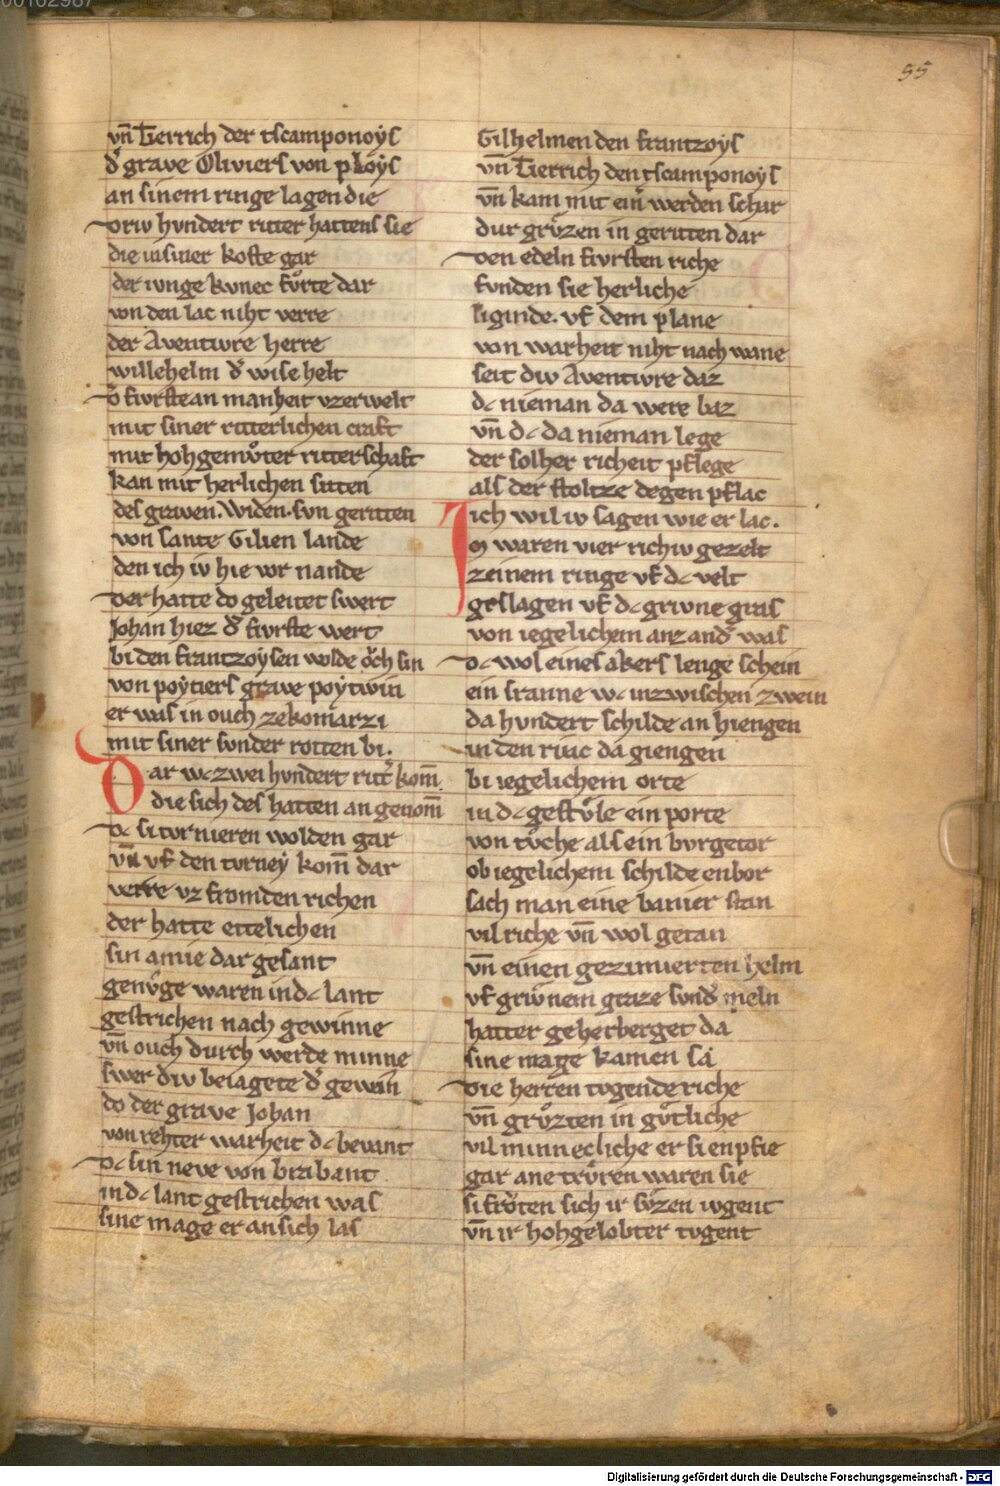 00102987
55
vn̄ Gerrich der tscamponoẏs
d᷑ grave Oliviers von ploẏs
an sinem ringe lagen die
driv hvndert ritter hattens sie
die in siner koste gar
der ivnge kvnec fůrte dar
von den lac niht verre
der Aventivre herre
willehelm d᷑ wise helt
d᷑ fivrste an manheit vzerwelt
mit siner ritterlichen craft
mit hohgemůter ritterschaft
kan mit herlichen sitten
des graven. Widen. svn geritten
von sante Gilien lande
den ich iv hie vor nande
der hatte do geleitet swert
Johan hiez d᷑ fivrste wert
bi den frantzoysen wolde ǒch sin
von poẏtiers grave poẏtwin
er was in ouch zekomarzi
mit siner svnder rotten bi.
Dar wc zwei hvndert ritt᷑ kom̄.
die sich des hatten an genom̄
dc si tvrnieren wolden gar
vn̄ vf den tvrneẏ kom̄ dar
verre vz fromden richen
der hatte ettelichen
sin amie dar gesant
genv̊ge waren in dc lant
gestrichen nach gewinne
vn̄ ouch durch werde minne
swer div beiagete d᷑ gewan
do der grave Johan
von rehter warheit dc bevant
dc sin neve von brabant
in dc lant gestrichen was
sine mage er an sich las
Gilhelmen den frantzoẏs
vn̄ Gerrich den tscamponoẏs
vn̄ kam mit ein᷑ werden schar
dur grv̊zen in geritten dar
den edeln fivrsten riche
fvnden sie herliche
liginde. vf dem plane
von warheit niht nach wane
seit div Aventivre daz
dc nieman da were baz
vn̄ dc da nieman lege
der solher richeit pflege
als der stoltze degen pflac
Ich wil iv sagen wie er lac.
Im waren vier richiv gezelt
zeinem ringe vf dc velt
geslagen vf dc grivne gras
von iegelichem anz and᷑ was
dc wol eines akers lenge schein
ein sranne wc inzwischen zwein
da hvndert schilde an hiengen
in den rinc da giengen
bi iegelichem orte
in dc gestv̊le ein porte
von tv̊che als ein bvrgetor
ob iegelichem schilde enbor
sach man eine banier stan
vil riche vn̄ wol getan
vn̄ einen gezimierten helm
vf grv̊nem graze svnd᷑ meln
hatter geherberget da
sine mage kamen sa
die herren tvgende riche
vn̄ grv̊zten in gv̊tliche
vil minnecliche er si enpfie
gar ane trv̊ren waren sie
si frǒten sich ir sv̊zen ivgent
vn̄ ir hohgelobter tvgent
Digitalisierung gefördert durch die Deutsche Forschungsgemeinschaft - DFG